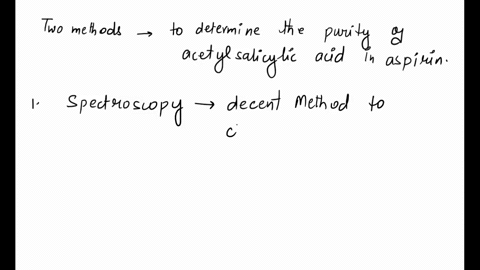 Two methods → to determine the purity of
acetylsalicylic acid in aspirin.
1. Spectroscopy → decent Method to
c